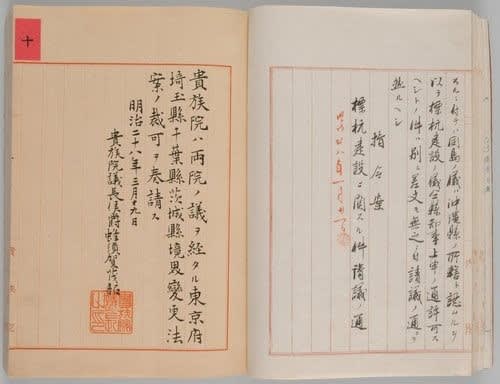 スルニ付テハ同島ノ儀ハ沖縄縣ノ所轄ト認ムルヲ
以テ標杭建設ノ儀仝縣知事上申ノ通許可ス
ヘシトノ件ハ別ニ差支モ無之ニ付請議ノ通ニテ
然ルヘシ
指令案
標杭建設ニ関スル件請議ノ通
明治廿八年一月廿一日
貴族院ハ両院ノ議ヲ経タル東京府
埼玉縣千葉縣茨城縣境界変更法
案ノ裁可ヲ奏請ス
明治二十八年三月十九日
貴族院議長侯爵蜂須賀茂韶
十